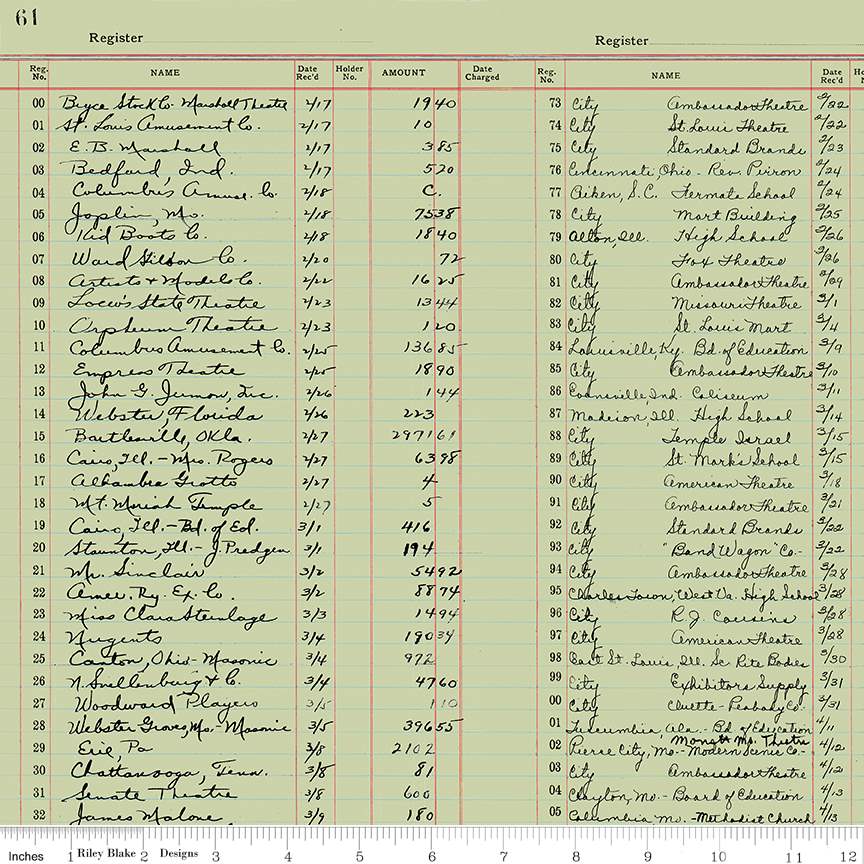 61
Register
Reg. No. NAME Date Rec'd Holder No. AMOUNT Date Charged
00 Bryce Stock Co. Marshall Theatre 2/17 19 40
01 St. Louis Amusement Co. 2/17 10
02 E. B. Marshall 2/17 3 85
03 Bedford, Ind. 2/17 5 20
04 Columbus Amuse. Co. 2/18 C.
05 Joplin, Mo. 2/18 75 38
06 Kid Boots Co. 2/18 18 40
07 Ward Co. 2/20 72
08 Artists & Models Co. 2/22 16 25
09 Loew's State Theatre 2/23 13 44
10 Orpheum Theatre 2/23 1 20
11 Columbus Amusement Co. 2/25 136 85
12 Empress Theatre 2/25 18 90
13 John G. Jermon, Inc. 2/26 1 44
14 Webster, Florida 2/26 223
15 Bartlesville, Okla. 2/27 2971 61
16 Cairo, Ill. - Mrs. Rogers 2/27 63 98
17 Alhambra Grotto 2/27 4
18 Mt. Moriah Temple 2/27 5
19 Cairo, Ill. - Bd. of Ed. 3/1 416
20 Staunton, Ill. - J. Predgen 3/1 194
21 Mr. Sinclair 3/2 54 92
22 Amer. Ry. Ex. Co. 3/2 88 74
23 Miss Clara Steinlage 3/3 14 94
24 Nugents 3/4 190 34
25 Canton, Ohio - Masonic 3/4 972
26 N. Snellenburg & Co. 3/4 47 60
27 Woodward Players 3/5 1 10
28 Webster Groves, Mo. - Masonic 3/5 396 55
29 Erie, Pa 3/8 2102
30 Chattanooga, Tenn. 3/8 81
31 Senate Theatre 3/8 600
32 James Malone 3/9 180
Register
Reg. No. NAME Date Rec'd
73 City Ambassador Theatre 2/22
74 City St. Louis Theatre 2/22
75 City Standard Brands 2/23
76 Cincinnati, Ohio - Rev. Peiron 2/24
77 Aiken, S.C. Fermata School 2/24
78 City Mart Building 2/25
79 Alton, Ill. High School 2/26
80 City Fox Theatre 2/26
81 City Ambassador Theatre 2/29
82 City Missouri Theatre 3/1
83 City St. Louis Mart 3/4
84 Louisville, Ky. Bd. of Education 3/9
85 City Ambassador Theatre 3/10
86 Evansville, Ind. Coliseum 3/11
87 Madison, Ill. High School 3/14
88 City Temple Israel 3/15
89 City St. Mark's School 3/15
90 City American Theatre 3/18
91 City Ambassador Theatre 3/21
92 City Standard Brands 3/22
93 City "Band Wagon" Co. - 3/22
94 City Ambassador Theatre 3/28
95 Charles Town, West Va. High School 3/28
96 City R. J. Cousins 3/28
97 City American Theatre 3/28
98 East St. Louis, Ill. Sc. Rite Bodies 3/30
99 City Exhibitors Supply 3/31
00 City Cluette - Peabody Co. 3/31
01 Tuscumbia, Ala. - Bd. of Education 4/11
Monett Mo. Theatre
02 Pierce City, Mo. - Modern Scenic Co. - 4/12
03 City Ambassador Theatre 4/12
04 Clayton, Mo. - Board of Education 4/13
05 Columbia Mo. - Methodist Church 4/13
Inches 1 Riley Blake 2 Designs 3 4 5 6 7 8 9 10 11 12